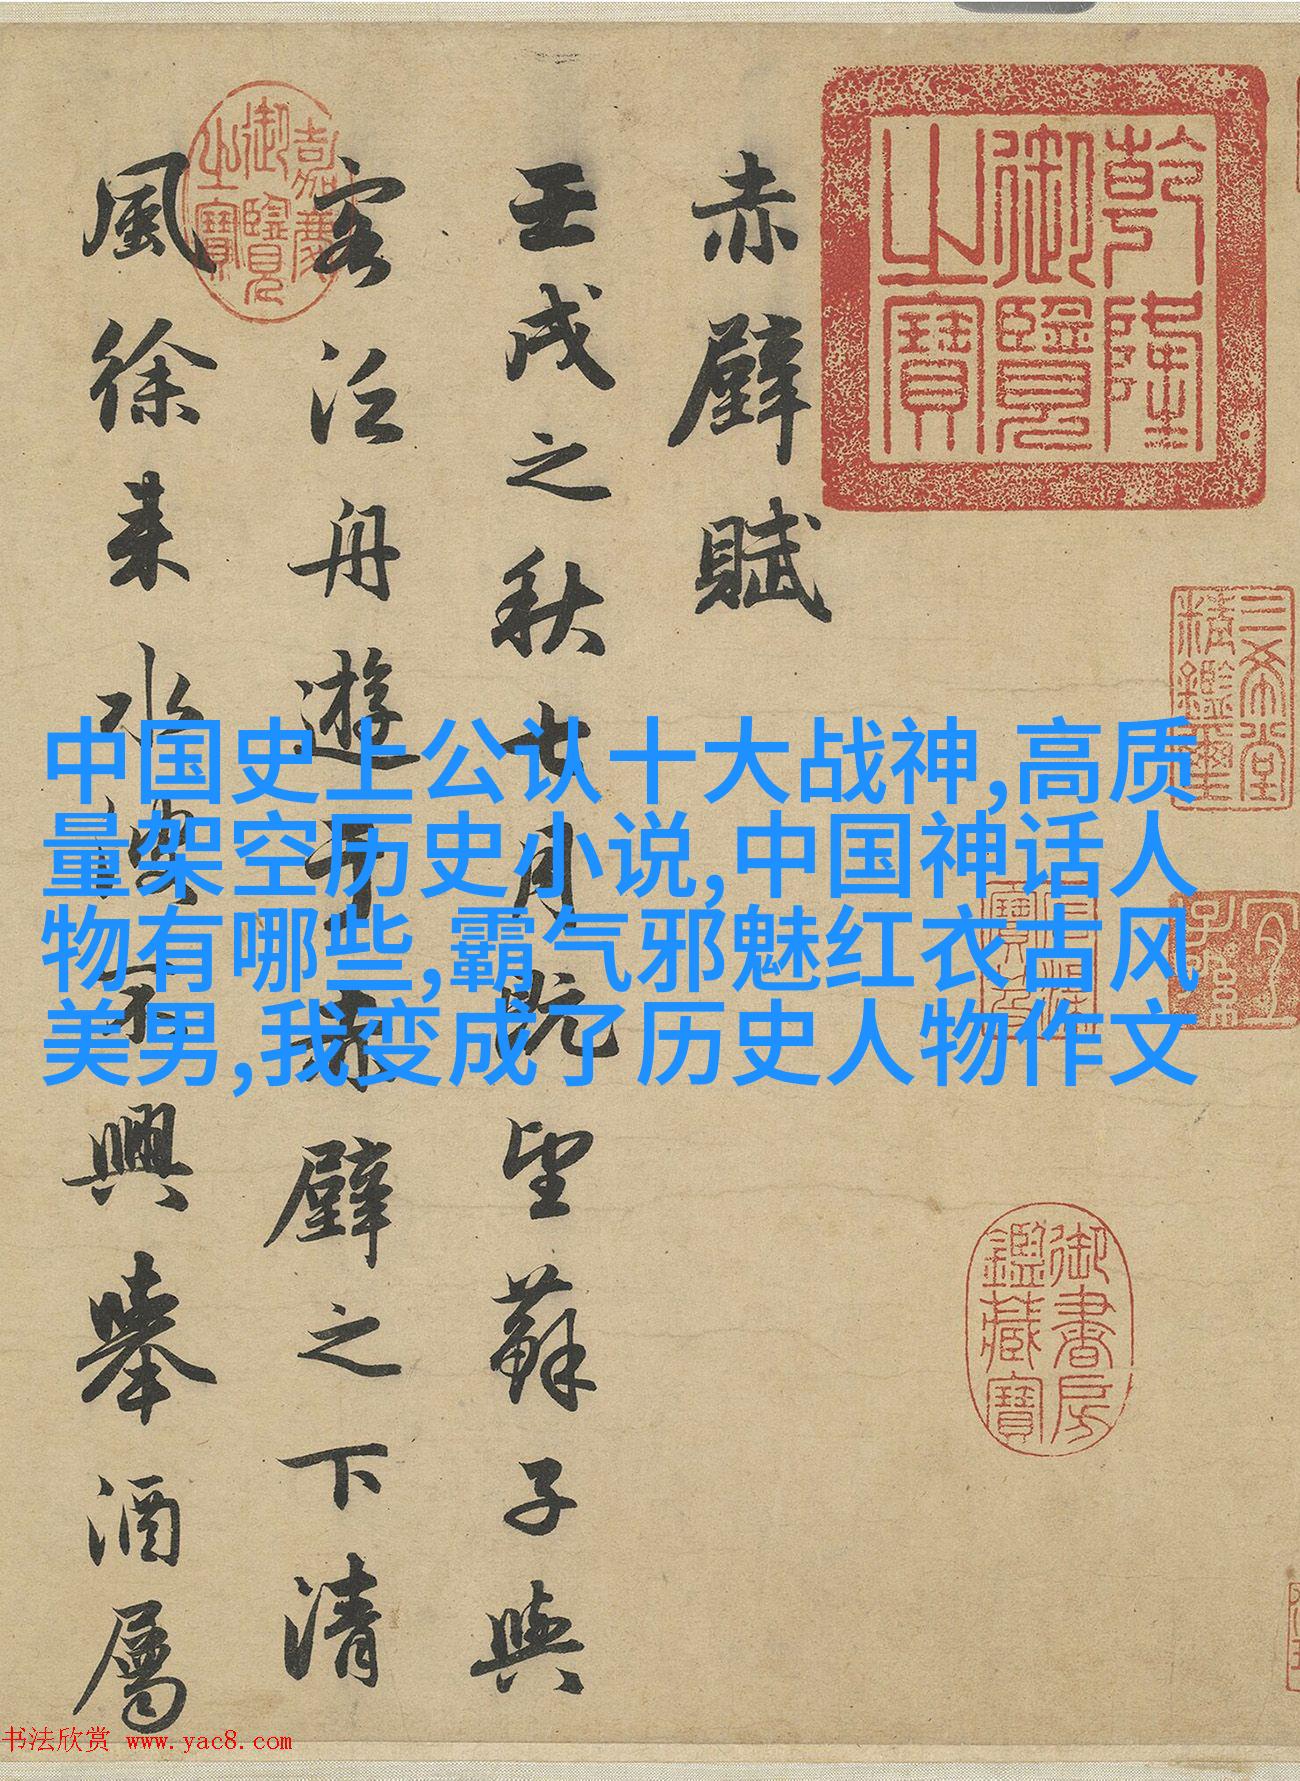 赤壁賦
壬戌之秋七月既望蘇子與
客泛舟遊于赤壁之下清
風徐来水波不興舉酒屬
乾隆御覽之寶
嘉慶御覽之寶
三希堂精鑑璽
宜子孫
御書房鑑藏寶
中国史上公认十大战神,高质
量架空历史小说,中国神话人
物有哪些,霸气邪魅红衣古风
美男,我变成了历史人物作文
书法欣赏 www.yac8.com